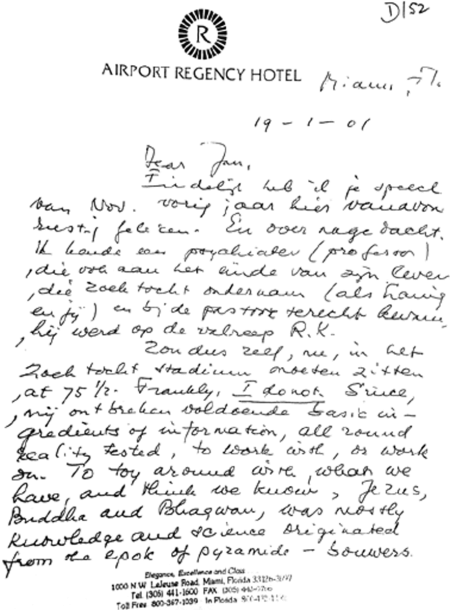 D/52
R
AIRPORT REGENCY HOTEL
Miami, Fl.
19-1-01
Dear Jan,
Eindelijk heb ik je speech
van Nov. vorig jaar hier vanavond
rustig gelezen. En over nagedacht.
Ik kende een psychiater (professor)
, die ook aan het einde van zijn leven
, die zoektocht ondernam (als
en jij) en bij de pastoor terecht kwam,
, hij werd op de valreep R.K.
Zou dus zelf, nu, in het
Zoektocht stadium moeten zitten
, at 75 1/2. Frankly, I do not. Since,
, mij ontbreken voldoende basic in-
gredients of information, all round
reality tested, to work with, or work
on. To toy around with, what we
have, and think we know, Jezus,
Buddha and Bhagwan, was mostly
knowledge and science originated
from the epok of pyramide - bouwers.
Elegance, Excellence and Class
1000 N.W. LeJeune Road, Miami, Florida
Tel (305) 441-1600 FAX (305)
Toll Free 800-367-1039 In Florida